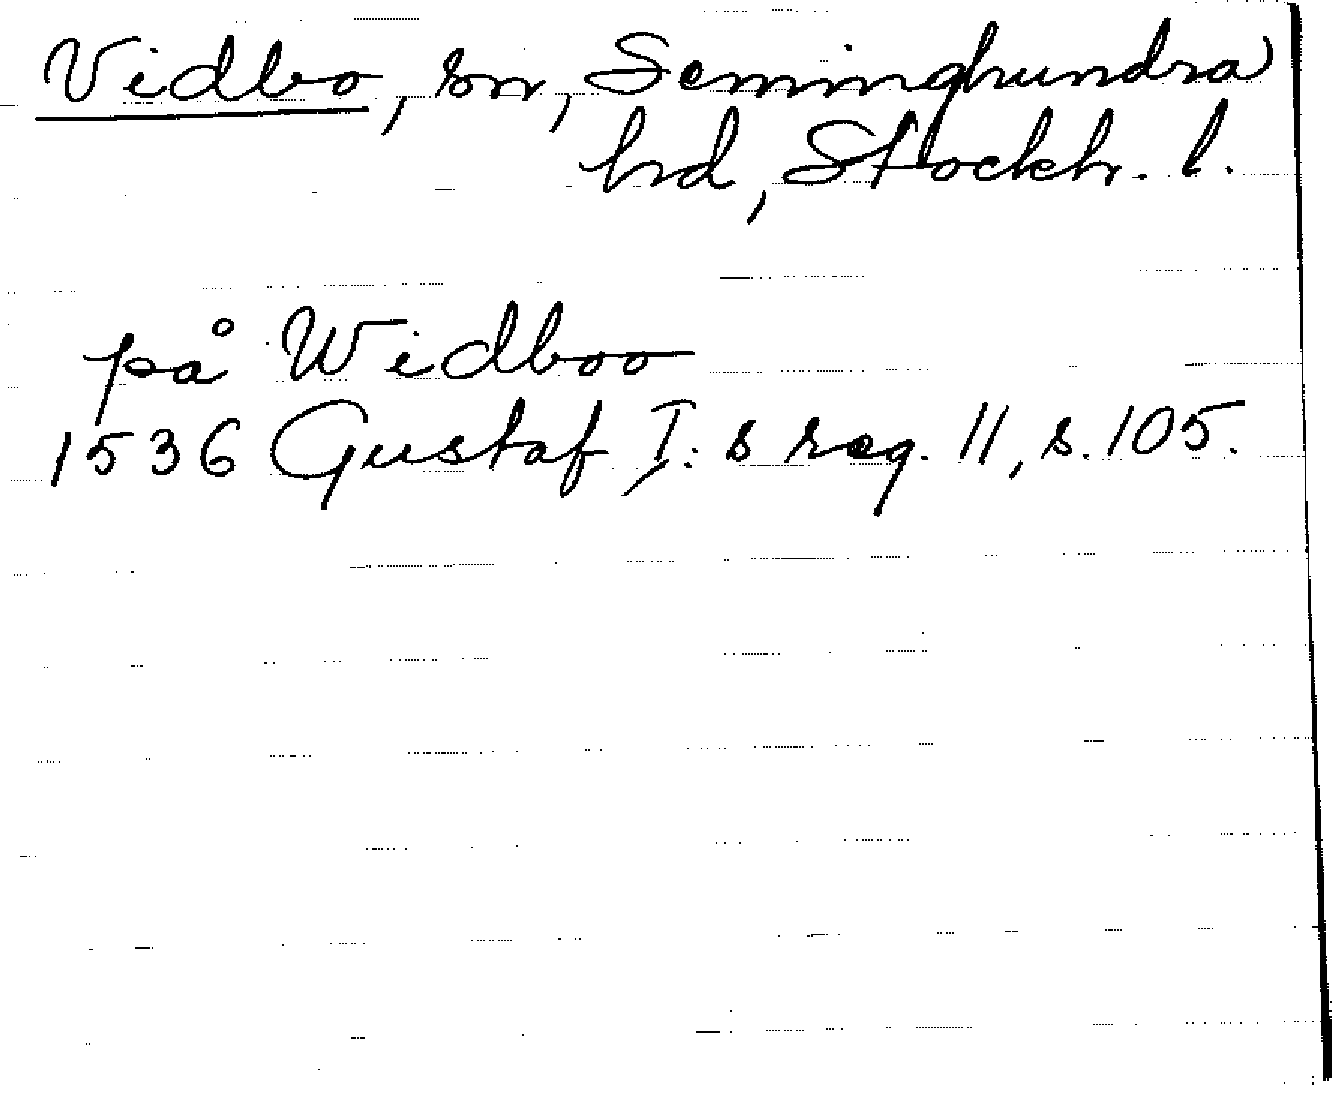 Vidbo, sn, Seminghundra
hd, Stockh. l.
på Widboo
1536 Gustaf I:s reg. 11, s. 105.